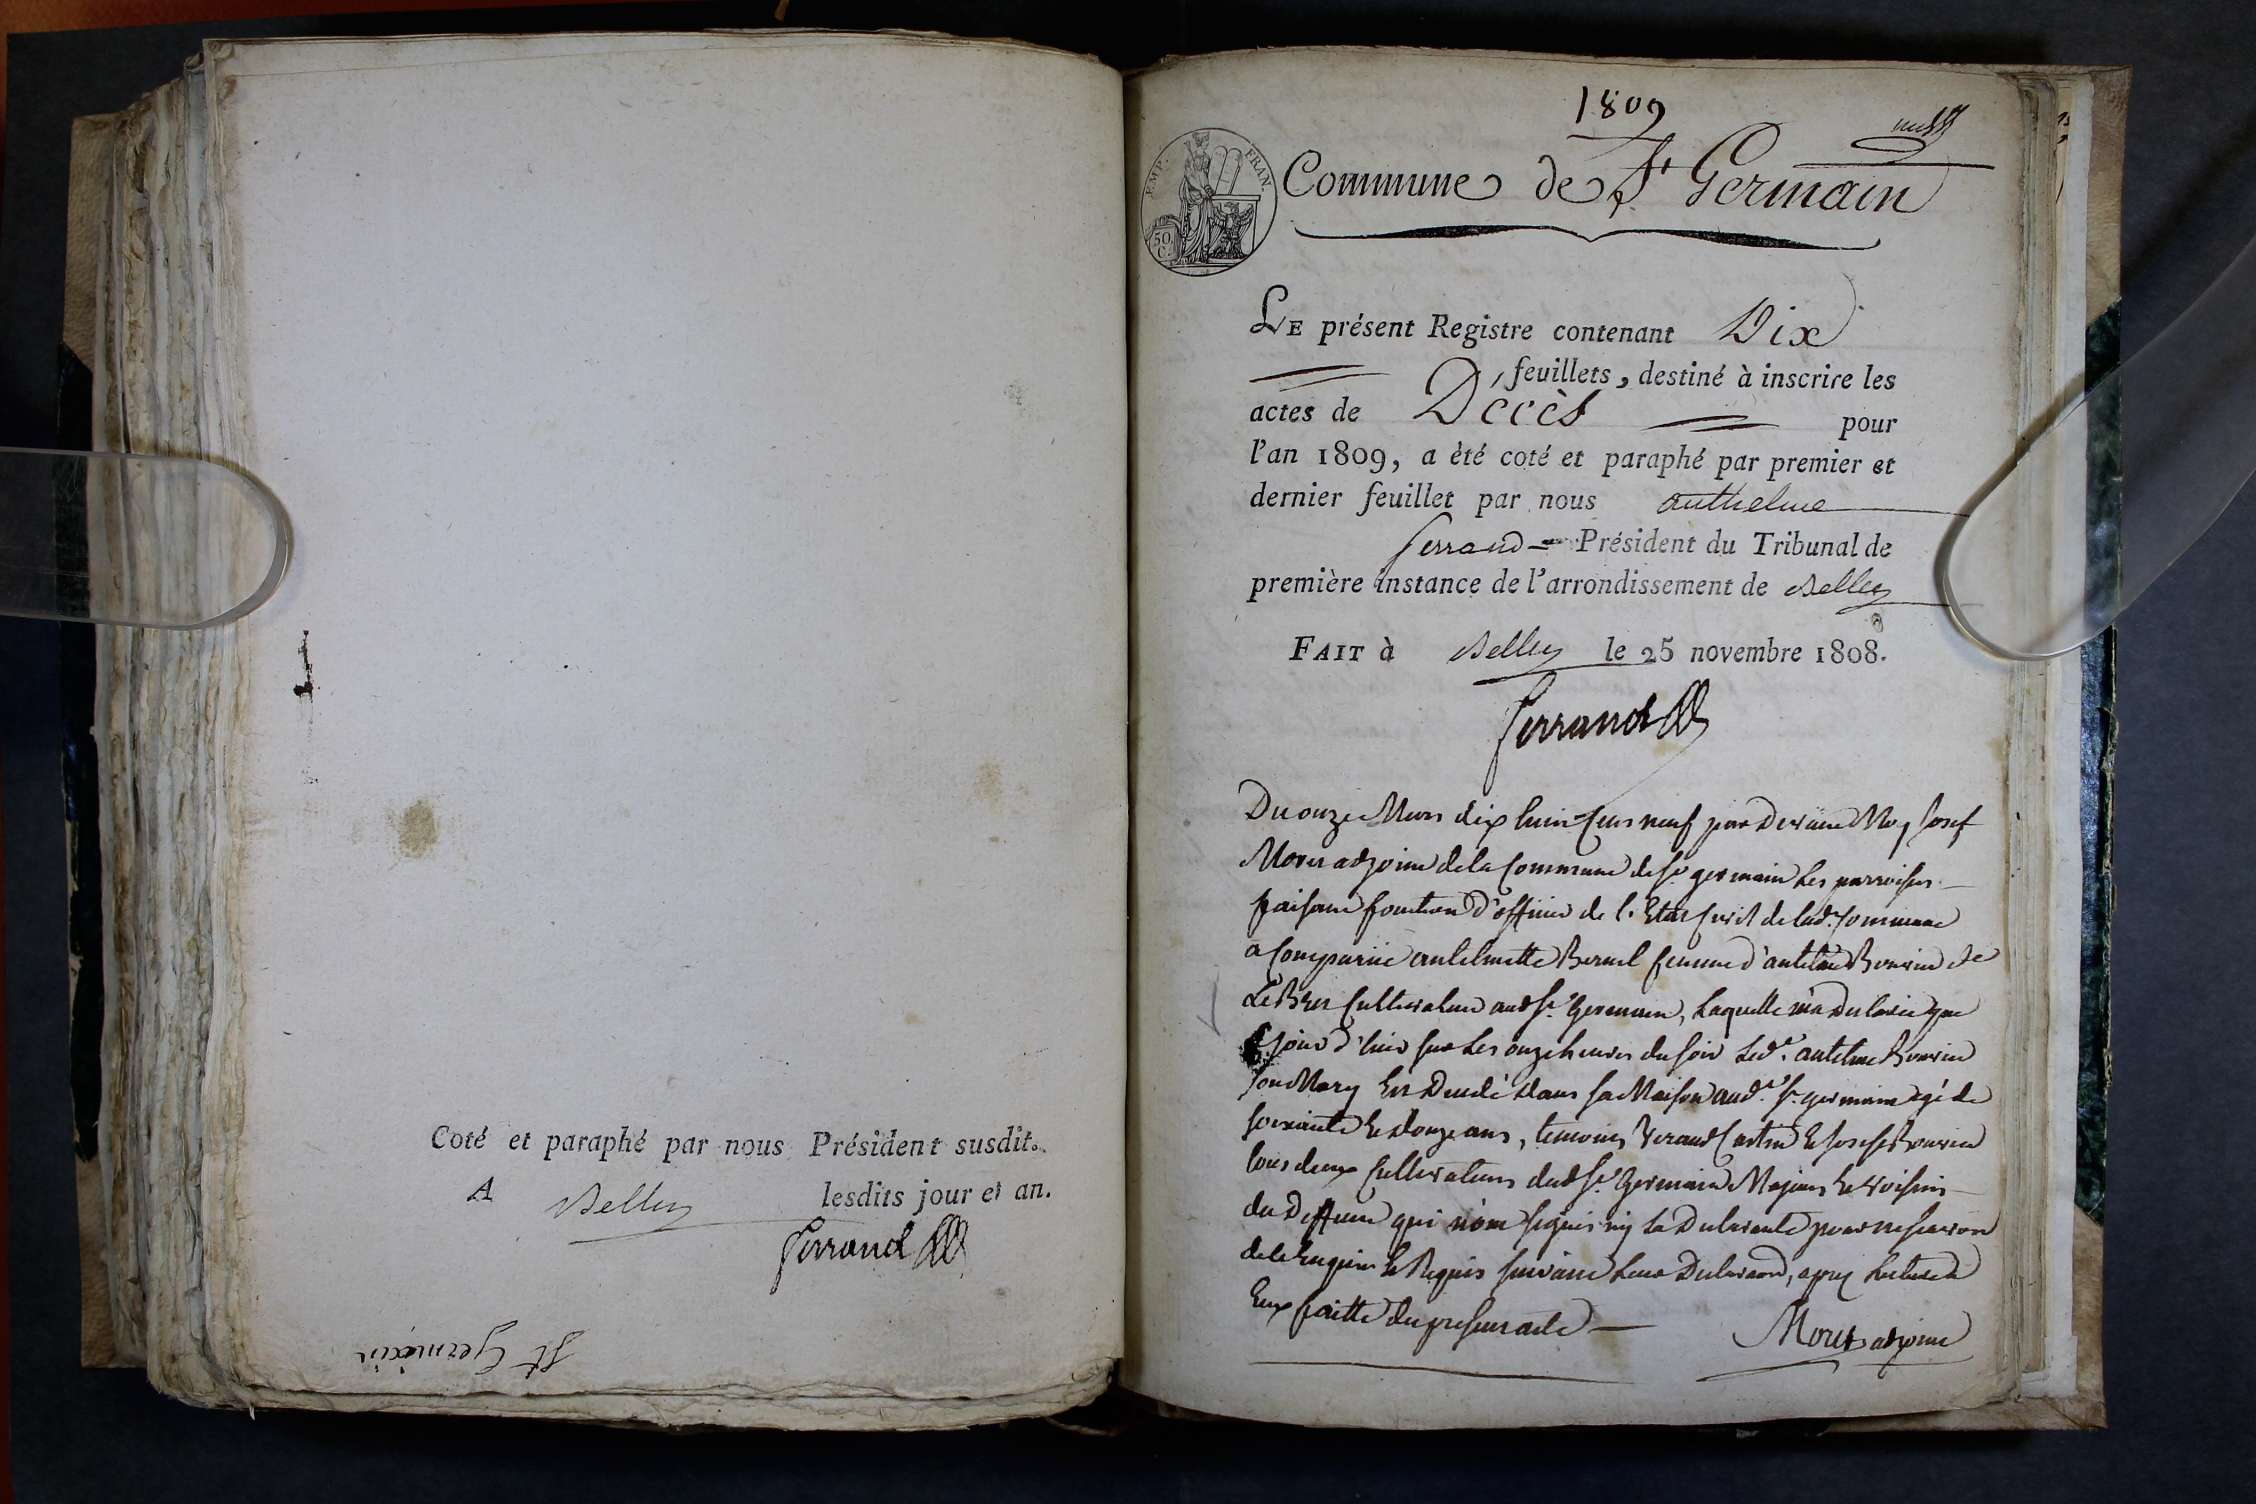 Coté et paraphé par nous Président susdit.
A Belley lesdits jour et an.
Ferrand
St Germain
1809
EMP. FRAN.
50. C.
Commune de St Germain
LE présent Registre contenant Dix
feuillets, destiné à inscrire les
actes de Décès pour
l'an 1809, a été coté et paraphé par premier et
dernier feuillet par nous anthelme
ferrand Président du Tribunal de
première instance de l'arrondissement de Belley
FAIT à Belley le 25 novembre 1808.
Ferrand
Du onze Mars dix huit Cens neuf par Devant Moy Josef
adjoint de la Commune de St germain Les parroisses
faisant fonction d'officier de l'Etat Civil de lad. Commune
a Comparüe antelmette femme d'antelme de
Cultivateur aud St Germain, Laquelle m'a Declaré que
jour d'hier sur Les onze heures du soir Led. antelme
son Mary Est Decedé dans sa Maison aud. St germain agé de
soixante Et douze ans, temoins Et Joseph
tous deux Cultivateurs dud St Germain Majeurs Et voisins
du Deffunt qui n'ont signés ny La Declarante pour ne savoir
de le Enquis Et Requis suivant Leur Declaration, apres Lecture a
Eux faitte du present acte
adjoint